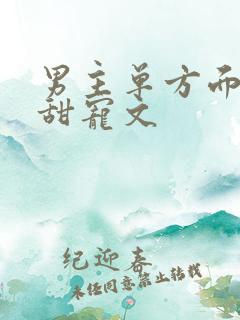 男主单方面
甜宠文
纪迎春
未经同意禁止转载